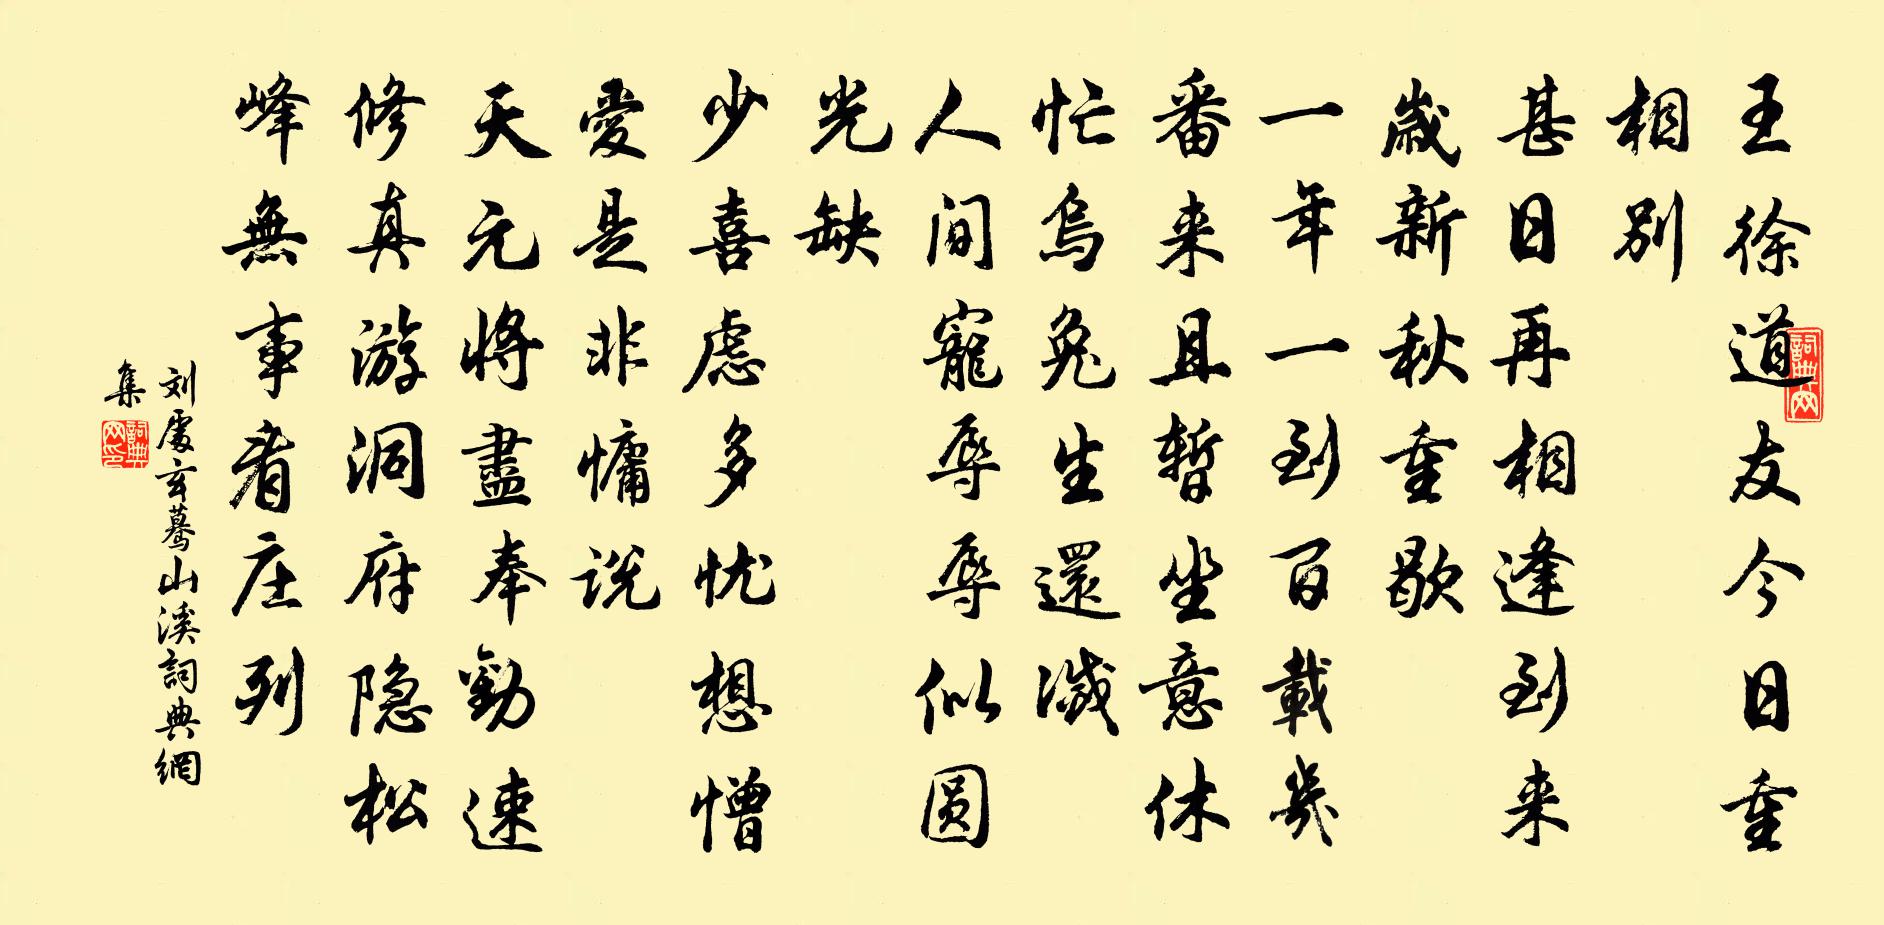 王徐道友今日重
相别
甚日再相逢到来
歲新秋重歇
一年一到百載幾
番来且暫坐意休
忙烏兔生還滅
人间寵辱辱似圆
光缺
少喜慮多忧想憎
愛是非慵说
天元将盡奉勸速
修真游洞府隐松
峰無事看庄列
刘處玄驀山溪詞典網
集
詞典网
詞典网印